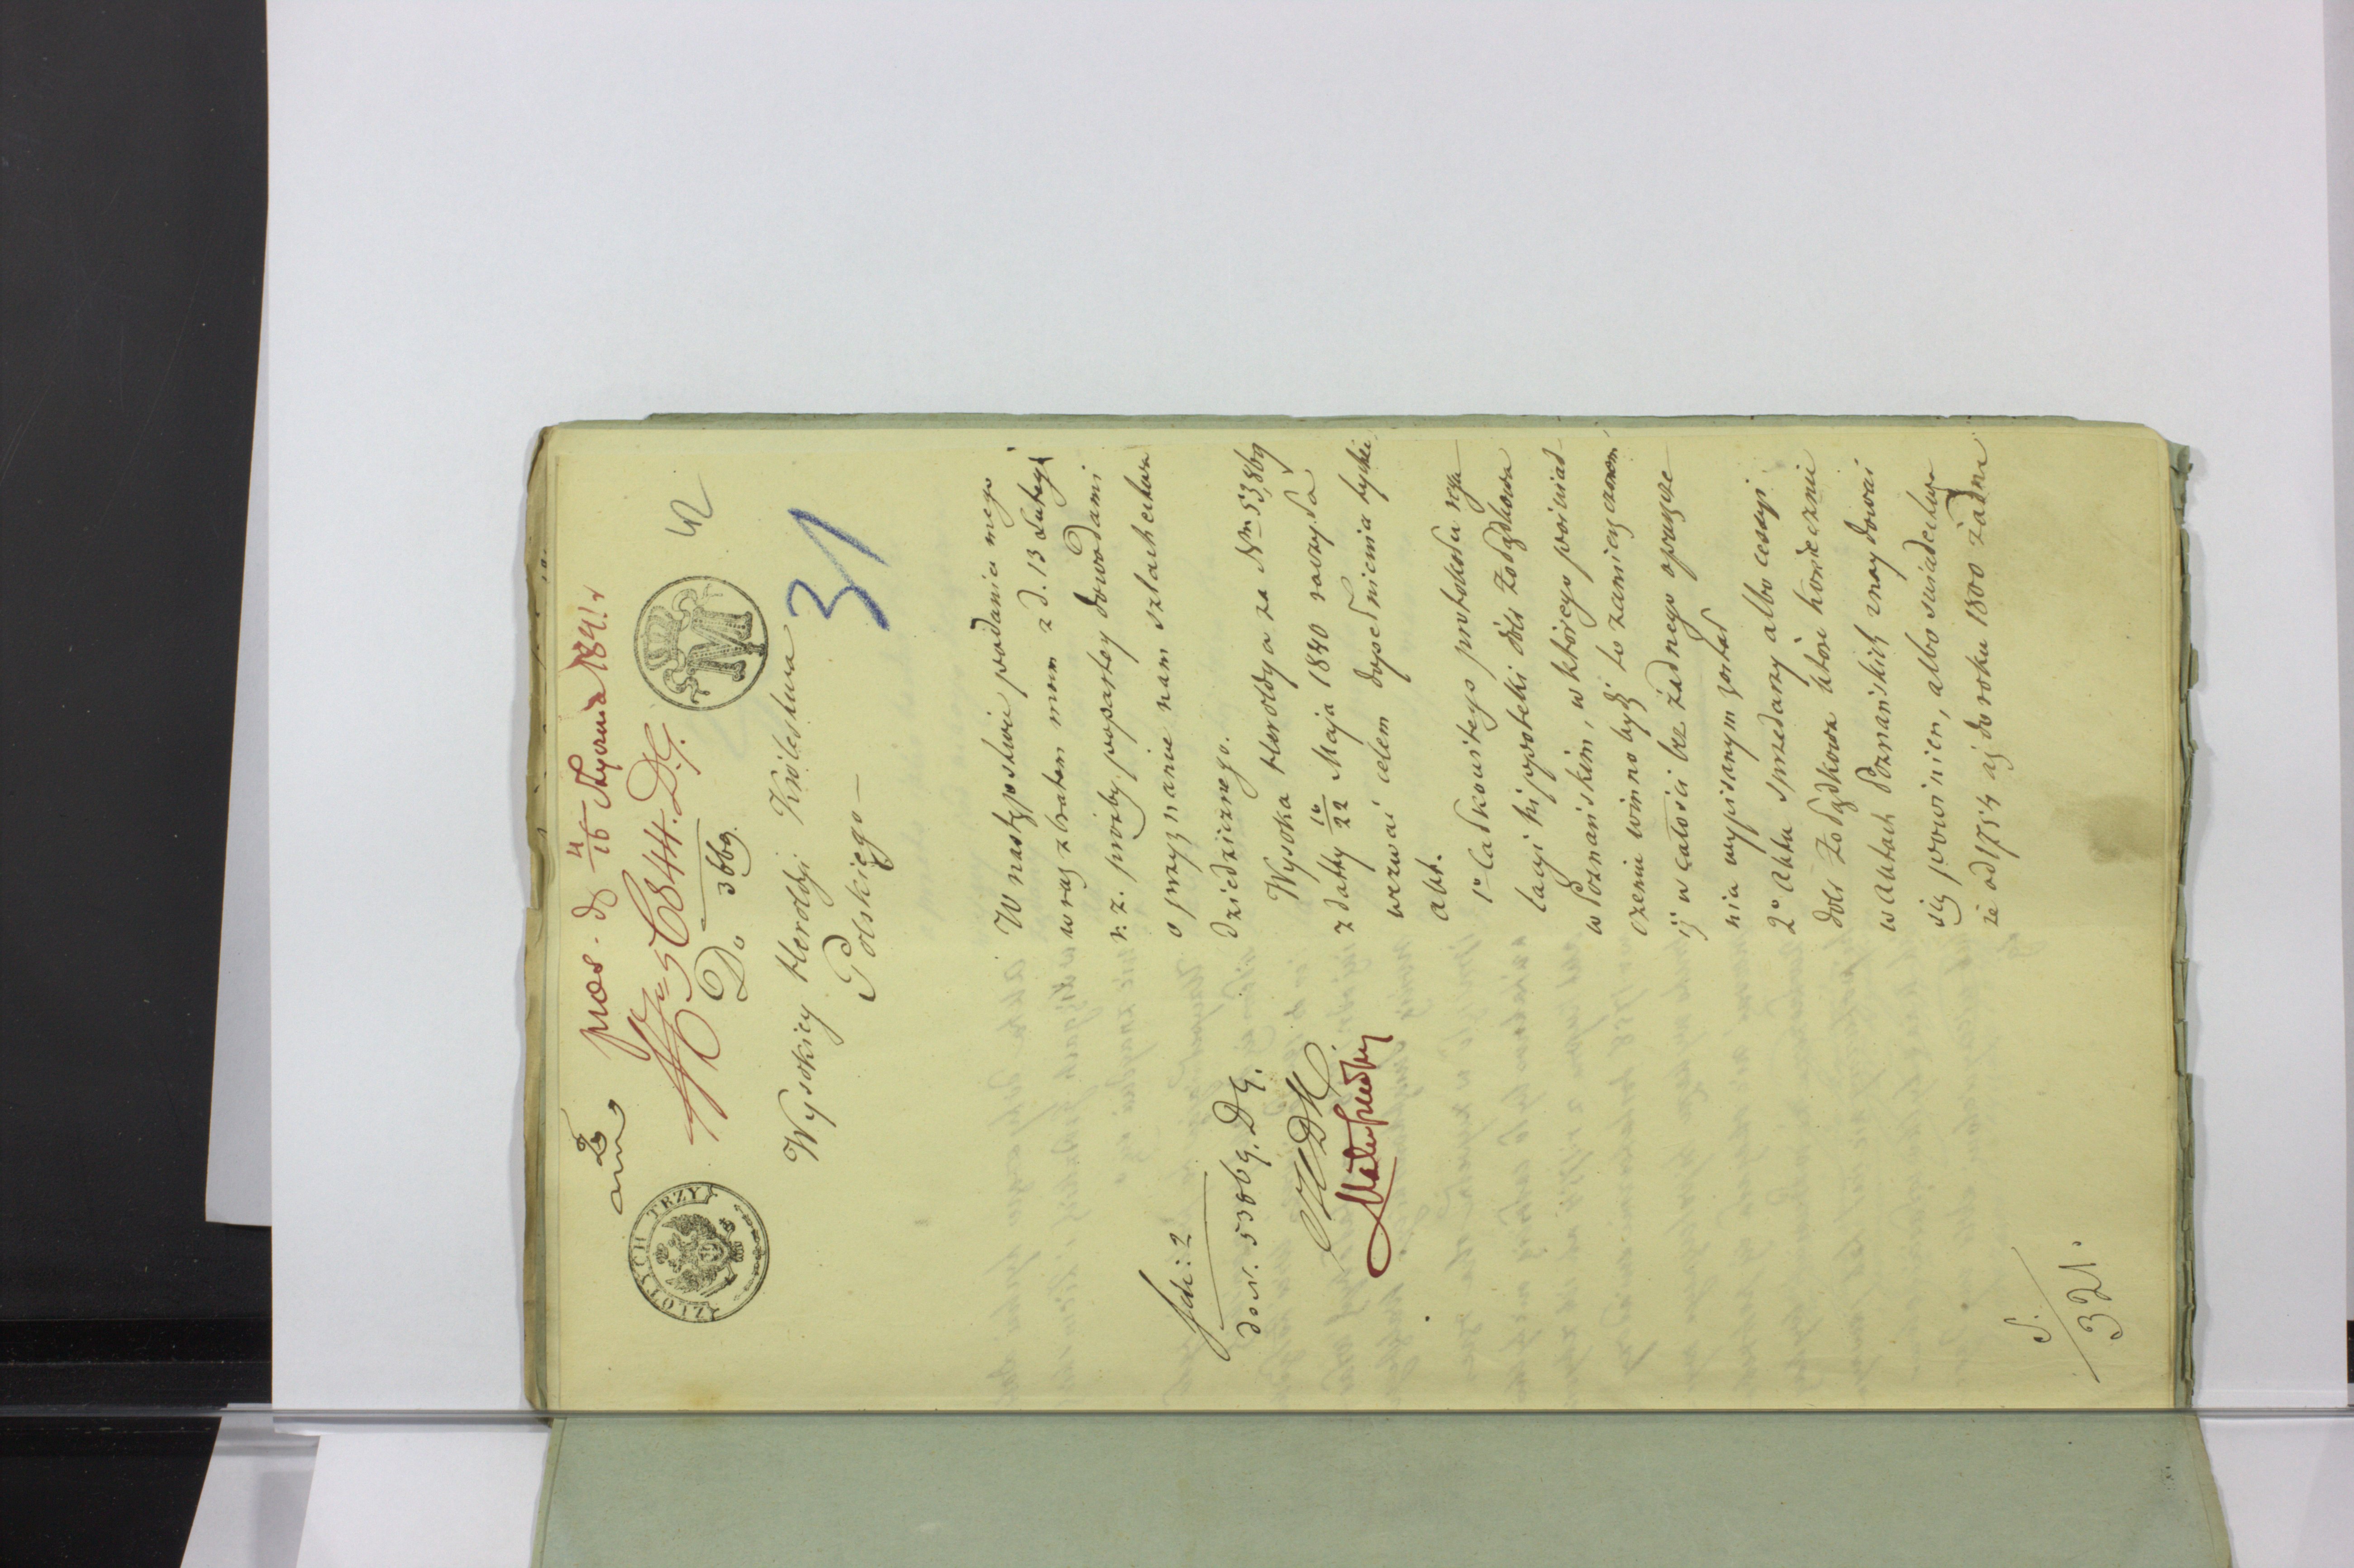 praes. d 4/16 Stycznia 1841 r
ZŁOTYCH TRZY
No C844. D.G.
Do 3669.
31
Wysokiey Heroldyi Królestwa
Polskiego—
W następstwie podania mego
wraz z bratem mem z d. 13 Lutego
r. z. prośby popartey dowodami
o przyznanie nam szlachectwa
dziedzicznego.
Wysoka Heroldya za Nrm 53,869
z datty 10/22 Maja 1840 raczyła
wezwać celem dopełnienia tychże
akt.
1o Całkowitego protokołu regu
lacyi hippoteki dóbr Zołądkowa
w Poznańskim, w którego poświad
czeniu winno bydź to zamieszczonem
iż w całości bez żadnego opuszcze
nia wypisanym został
2o Aktu sprzedaży albo cessyi
dóbr Zołądkowa które koniecznie
w Aktach Poznańskich znaydować
się powinien, albo świadectwa
że od 1754 aż do roku 1800 żadne
fsc: 2
do N. 53869. D G.
S.
321.